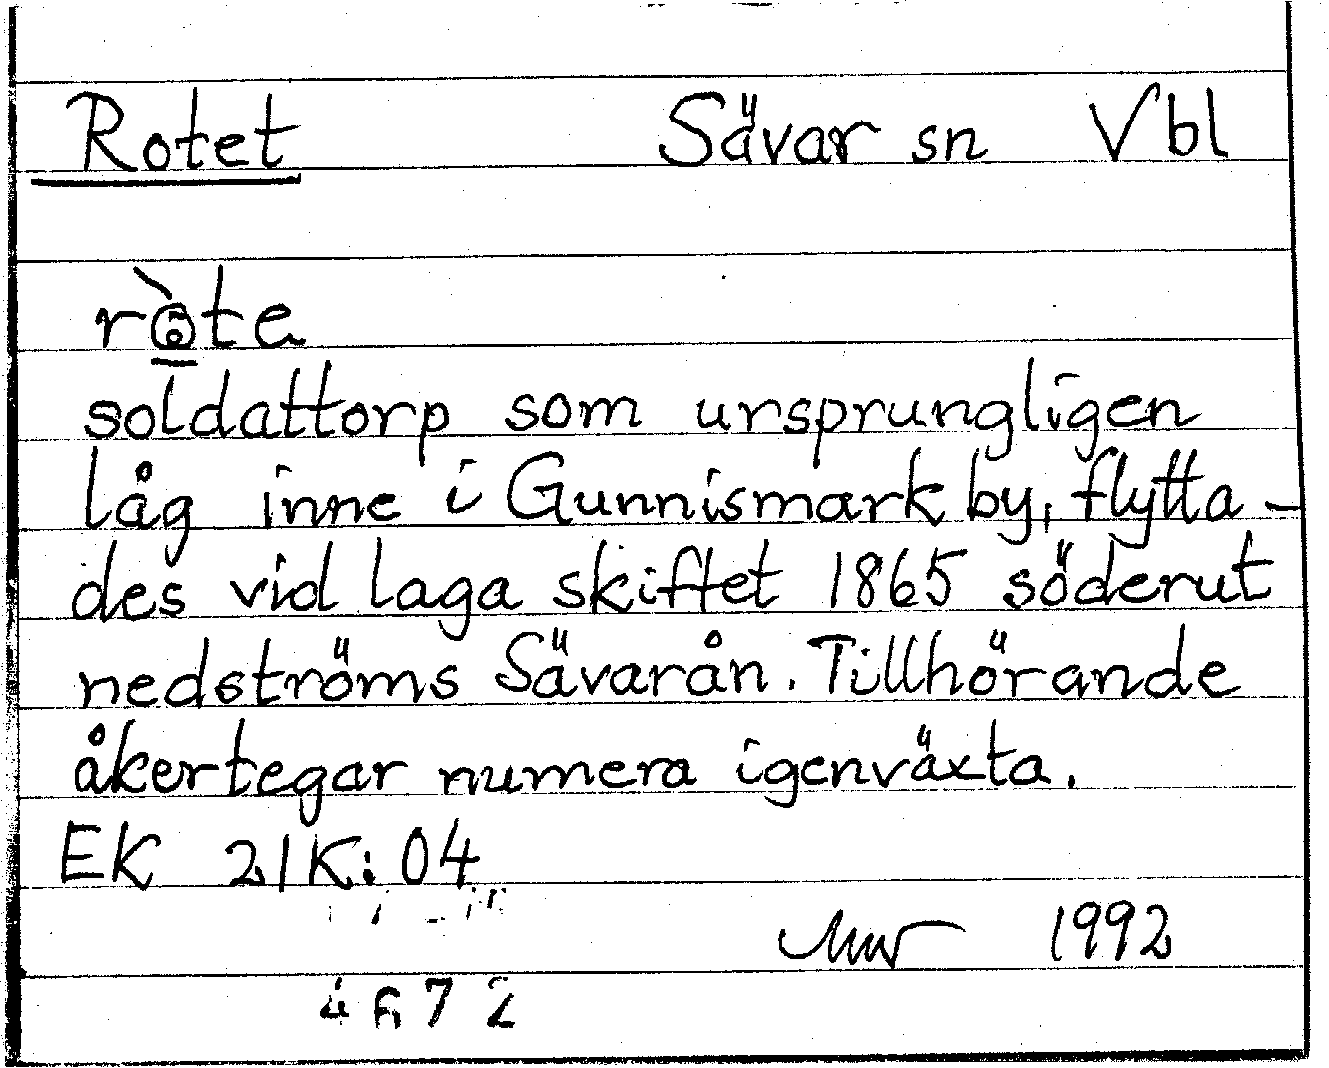 Rotet Sävar sn Vbl
soldattorp som ursprungligen
låg inne i Gunnismark by, flytta-
des vid laga skiftet 1865 söderut
nedströms Sävarån. Tillhörande
åkertegar numera igenväxta.
EK 21K:04
1992
4672